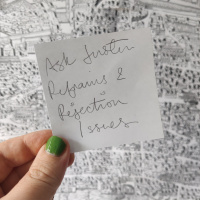 Ask Justin
Refrains &
Rejection
Issues